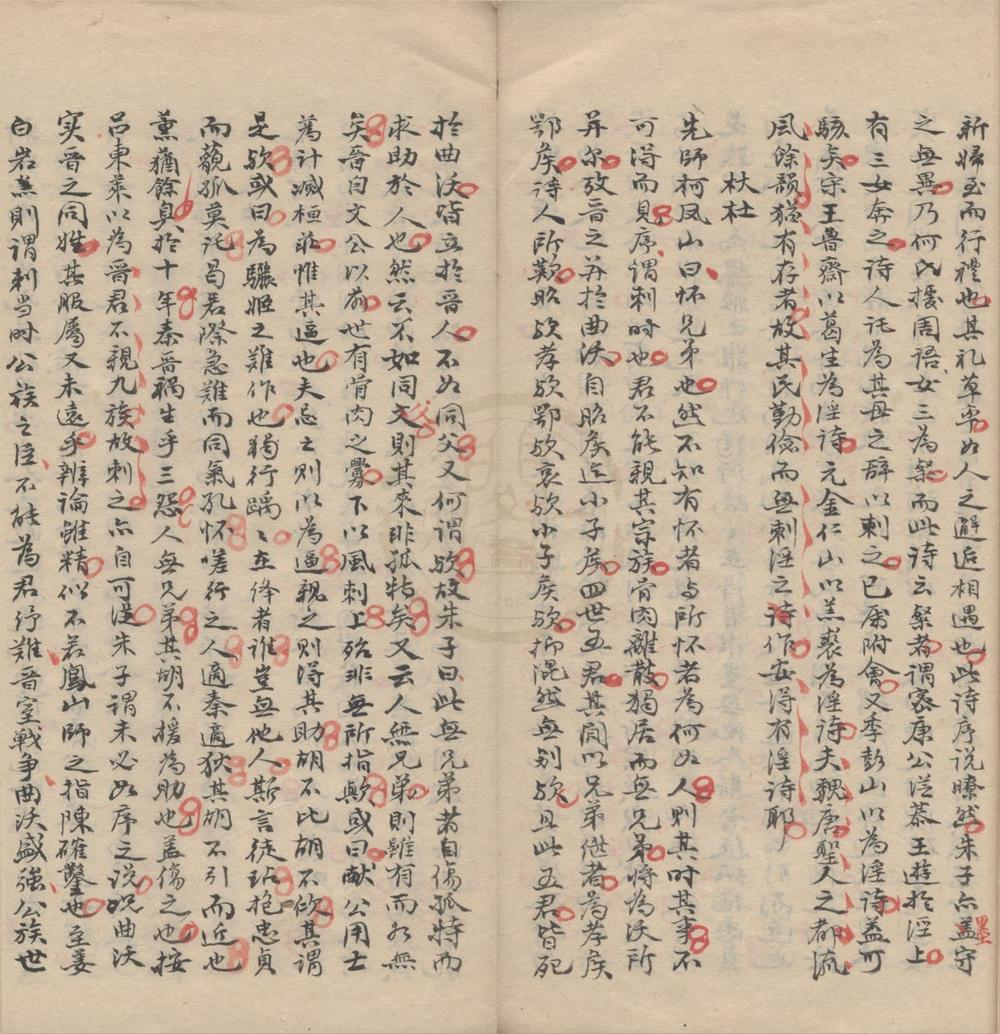 新婦至而行禮也其礼草率如人之邂逅相遇也此詩序說瞭然朱子亦盖守
之無異乃何氏援周語女三為粲而此詩云粲者謂密康公從恭王遊於涇上
有三女奔之詩人託為其母之辞以刺之已属附會又季彭山以為淫詩益可
駭矣宗王魯齋以葛生為淫詩元金仁山以羔裘為淫詩夫魏唐聖人之都流
風餘韻猶有存者故其民勤儉而無刺淫之詩作安得有淫詩耶
杕杜
先師柯鳳山曰怀兄弟也然不知有怀者与所怀者為何如人則其时其事不
可得而見序謂刺时也君不能親其宗族骨肉離散獨居而無兄弟将為沃所
并尔攷晉之并於曲沃自昭侯迄小子侯四世五君其间以兄弟継者為孝侯
鄂侯詩人所歎昭欤孝欤鄂欤哀欤小子侯欤抑混然無别欤且此五君皆死
於曲沃皆立於晉人不如同父又何謂欤故朱子曰此無兄弟者自傷孤特而
求助於人也然云不如同父則其來非孤特矣又云人無兄弟則雖有而如無
矣晉自文公以前世有骨肉之釁下以風刺上殆非無所指歟或曰献公用士
蒍計滅桓莊惟其逼也夫忌之則以為逼親之則得其助胡不比胡不佽其謂
是欤或曰為驪姬之難作也獨行踽〻在絳者谁豈無他人斯言徒玷抱忠貞
而藐孤莫託曷若際急難而同氣孔怀嗟行之人適秦適狄其胡不引而近也
薰蕕餘臭於十年秦晉禍生乎三怨人無兄弟其胡不援為助也盖傷之也按
呂東萊以為晉君不親九族故刺之亦自可從朱子謂未必如序之说况曲沃
实晉之同姓其服属又未遠乎辨論雖精似不若鳳山師之指陳確鑿也至姜
白岩羔則謂刺当时公族之臣不能為君纾難晉室戰争曲沃盛強公族世
墨
父